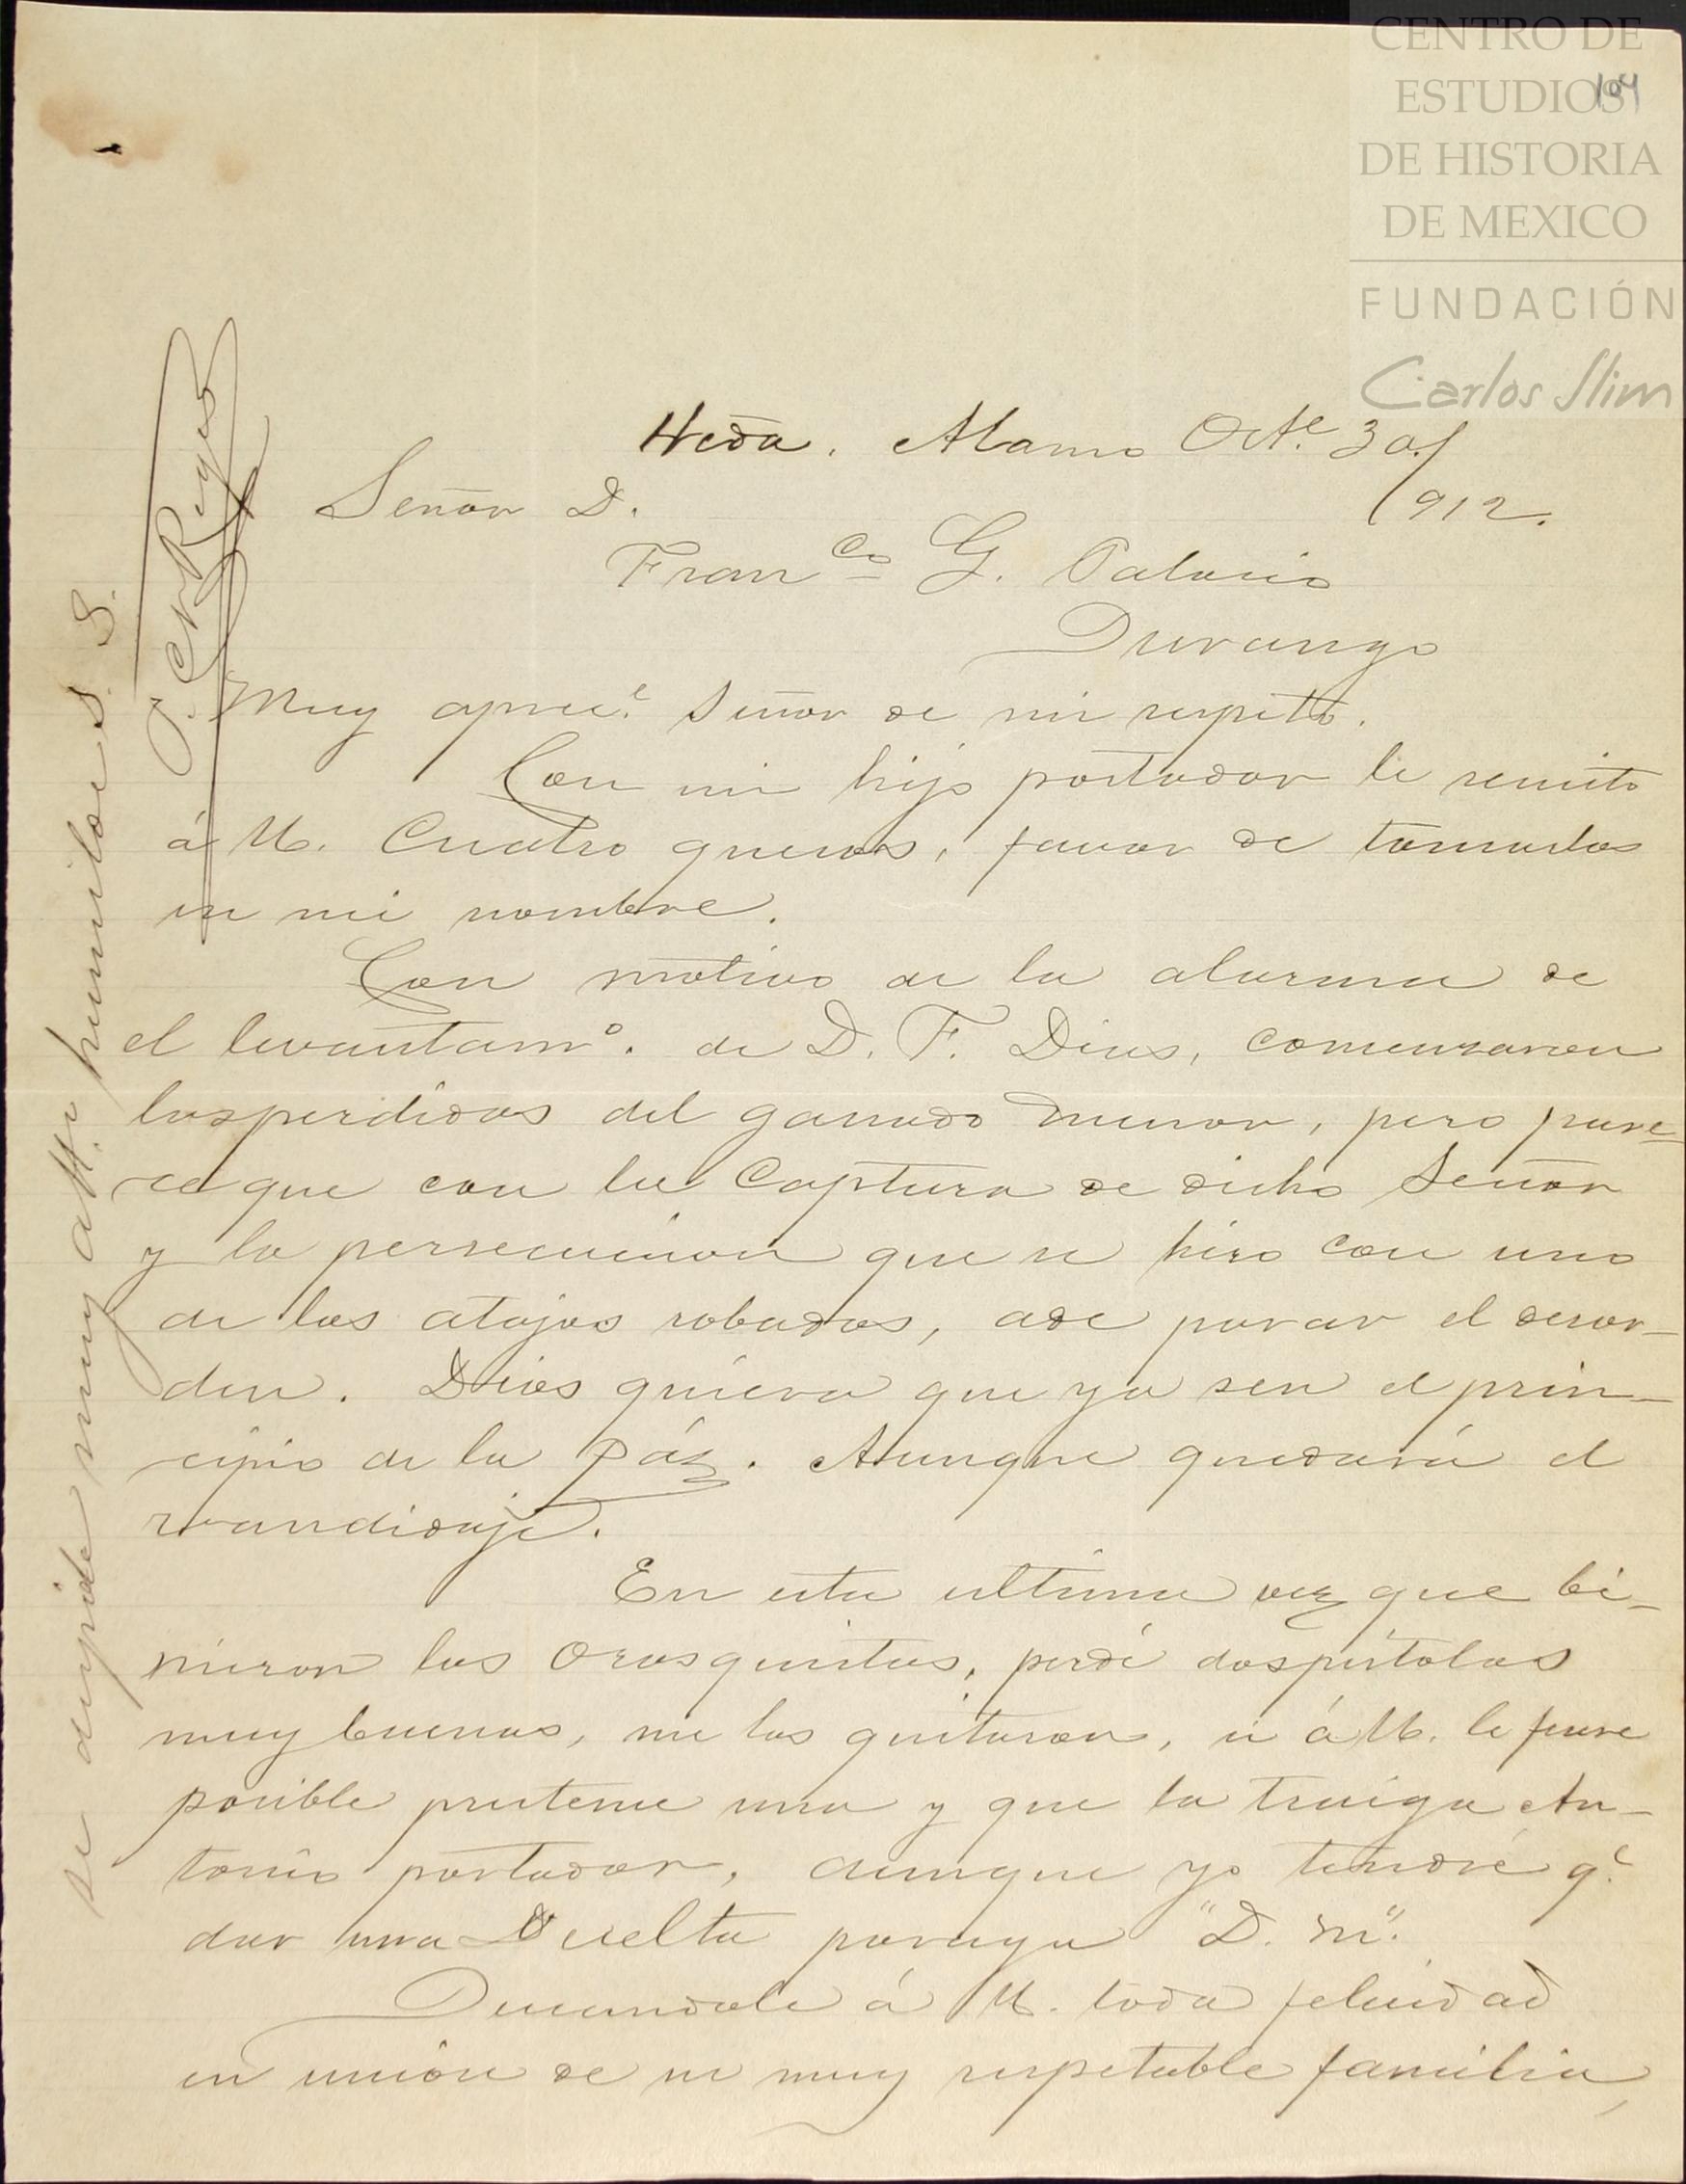 CENTRO DE
ESTUDIOS
DE HISTORIA
DE MEXICO
FUNDACIÓN
Carlos Slim
104
Hcda. Alamo Oct.e 30/
912.
Señor D.
Fran.co G. Palacio
Durango
Muy aprec.e Señor de mi respeto.
Con mi hijo portador le remito
á U. Cuatro quesos, favor de tomarlos
en mi nombre.
Con motivo de la alarma de
el levantam.o de D. F. Dias, comenzaron
las perdidas del ganado menor, pero pare-
ce que con la Captura de dicho Señor
y la persecucion que se hizo con uno
de los atajos robados, ade parar el desor-
den. Dios quiera que ya sea el prin-
cipio de la Páz. Aunque quedará el
vandidaje.
En esta ultima vez que bi-
nieron los Orosquistas, perdí dos pistolas
muy buenas, me las quitaron, si á U. le fuere
posible presteme una y que la traiga An-
tonio portador, aunque yo tendré q.e
dar una Vuelta por aya "D. m."
Deceandole á U. toda felicidad
en union de su muy respetable familia,
se despide muy att.o humilde S. S.
J. C. N. Reyes